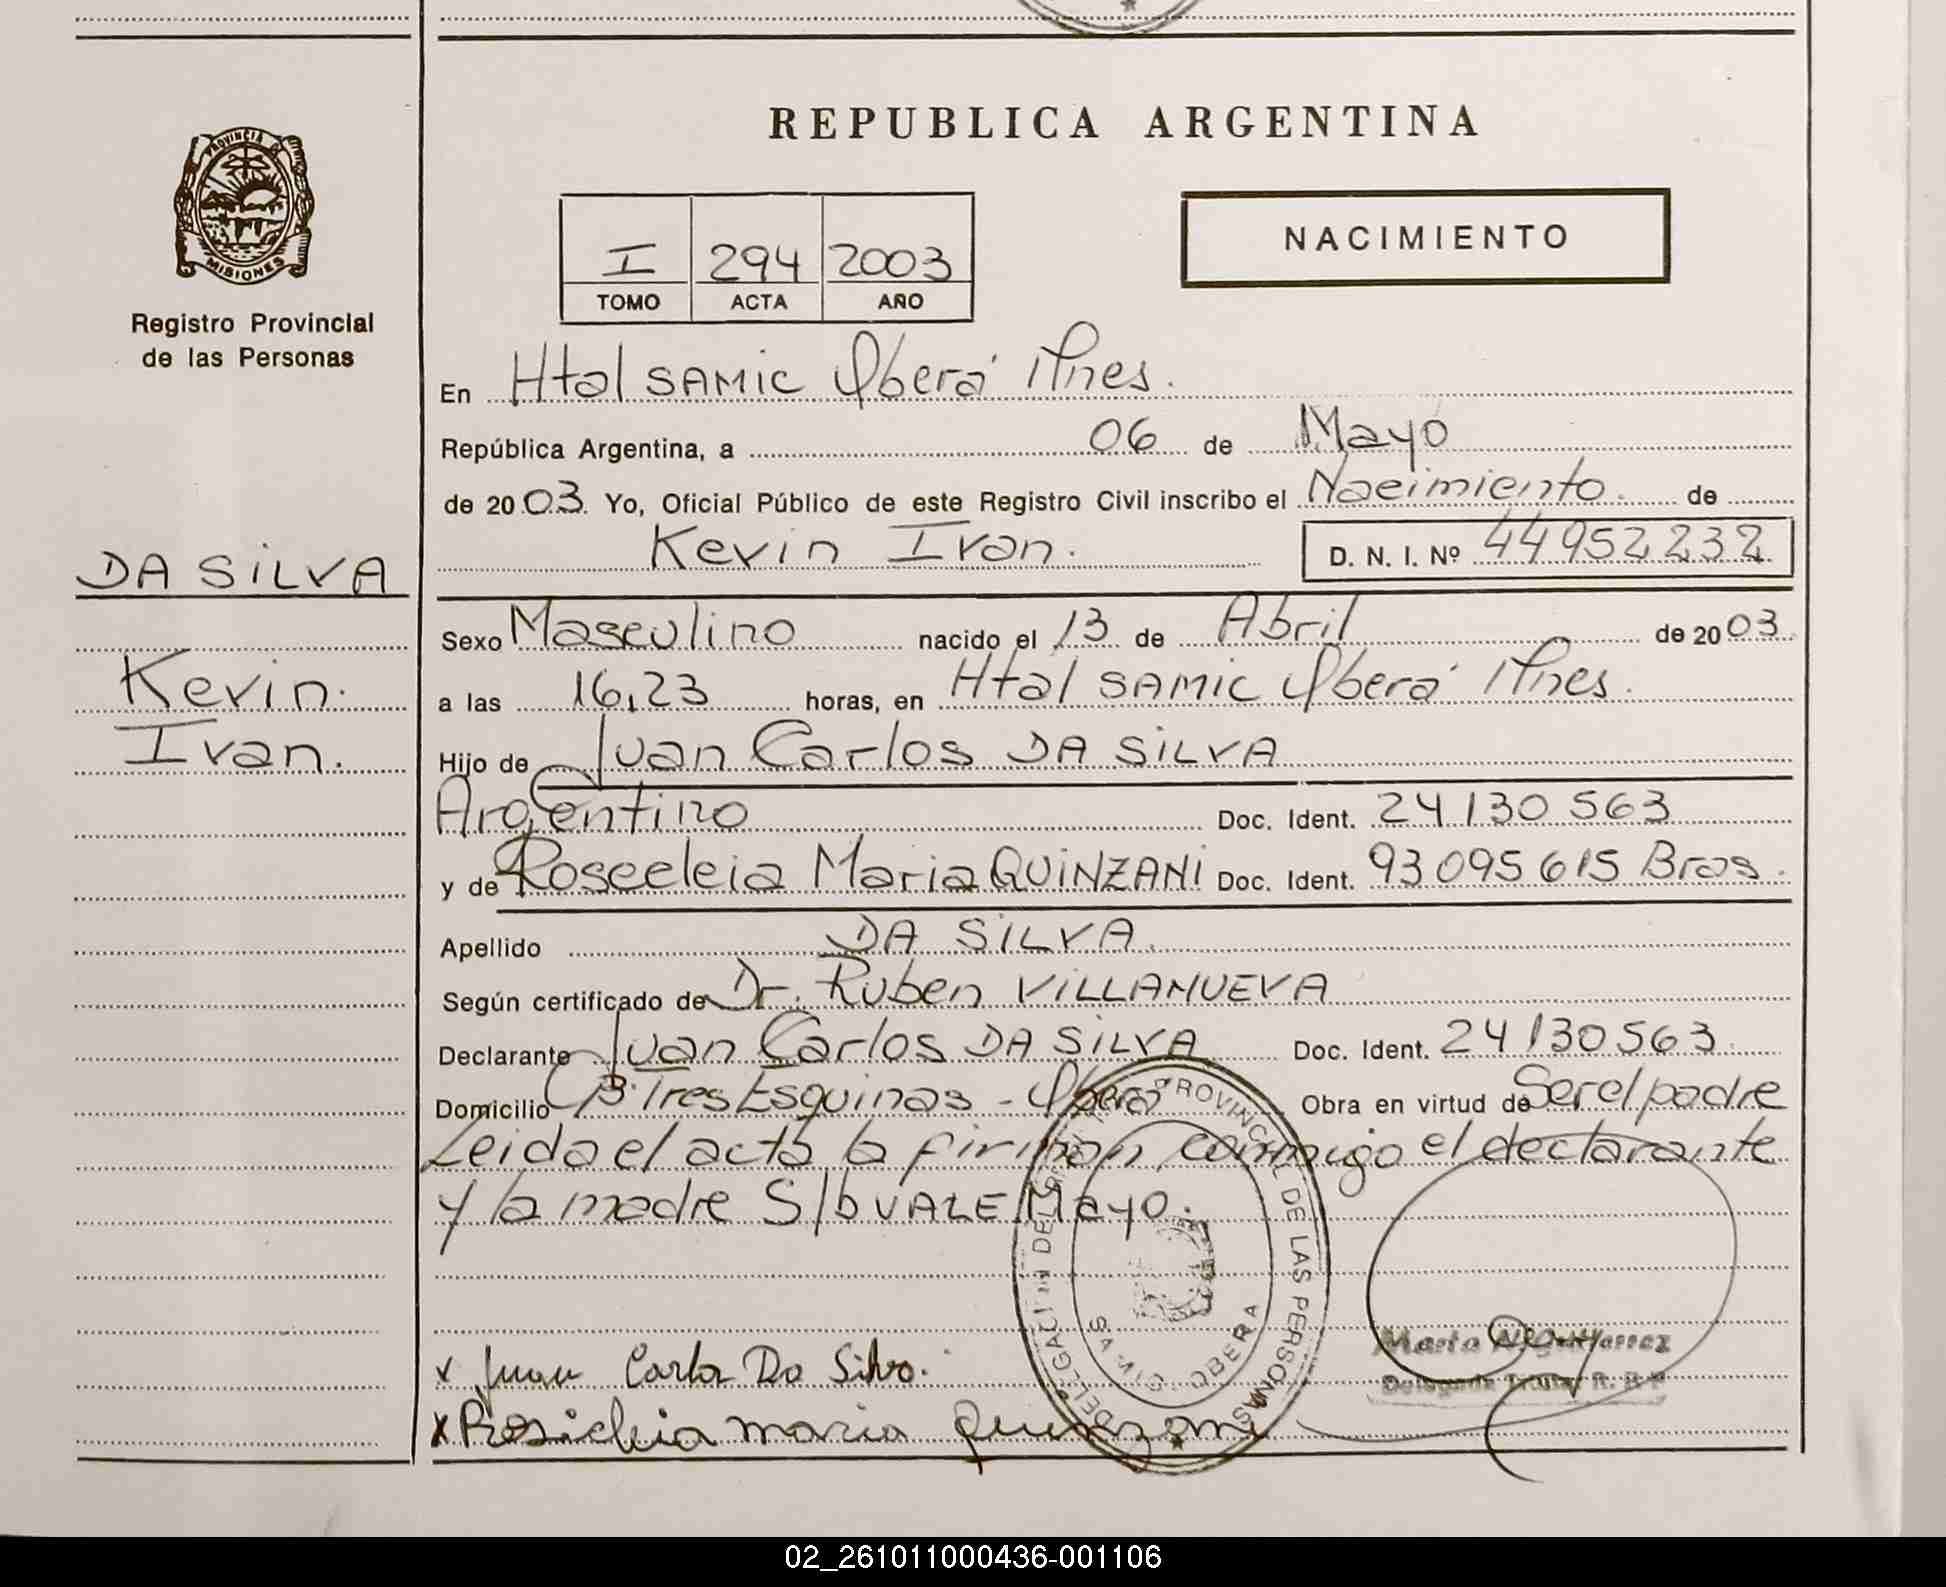 REPUBLICA ARGENTINA
PROVINCIA DE
MISIONES
Registro Provincial
de las Personas
I 294 2003
TOMO ACTA AÑO
NACIMIENTO
En Htal SAMIC Oberá Mnes.
República Argentina, a 06 de Mayo
de 2003. Yo, Oficial Público de este Registro Civil inscribo el Nacimiento de
Kevin Ivan. D. N. I. Nº 44952232
DA SILVA
Kevin.
Ivan.
Sexo Masculino nacido el 13 de Abril de 2003
a las 16,23 horas, en Htal SAMIC Oberá Mnes.
Hijo de Juan Carlos DA SILVA
Argentino Doc. Ident. 24130563
y de Roseeleia Maria QUINZANI Doc. Ident. 93095615 Bras.
Apellido DA SILVA.
Según certificado de Dr. Ruben VILLANUEVA
Declarante Juan Carlos DA SILVA Doc. Ident. 24130563
Domicilio Bº Tres Esquinas - Oberá Obra en virtud de Ser el padre
Leida el acta la firman conmigo el declarante
y la madre S/b VALE Mayo.
x Juan Carlos Da Silva.
x Rosicleia maria Quinzani
DELEGACION DEL REGISTRO PROVINCIAL DE LAS PERSONAS
OBERA
Marta N. Gutierrez
Delegada Titular R. P. P.
02_261011000436-001106